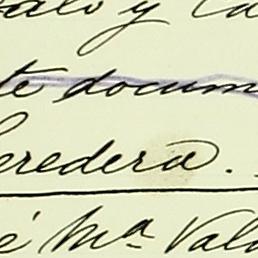 alo y Ca
te docum
eredera.
é Mª Val